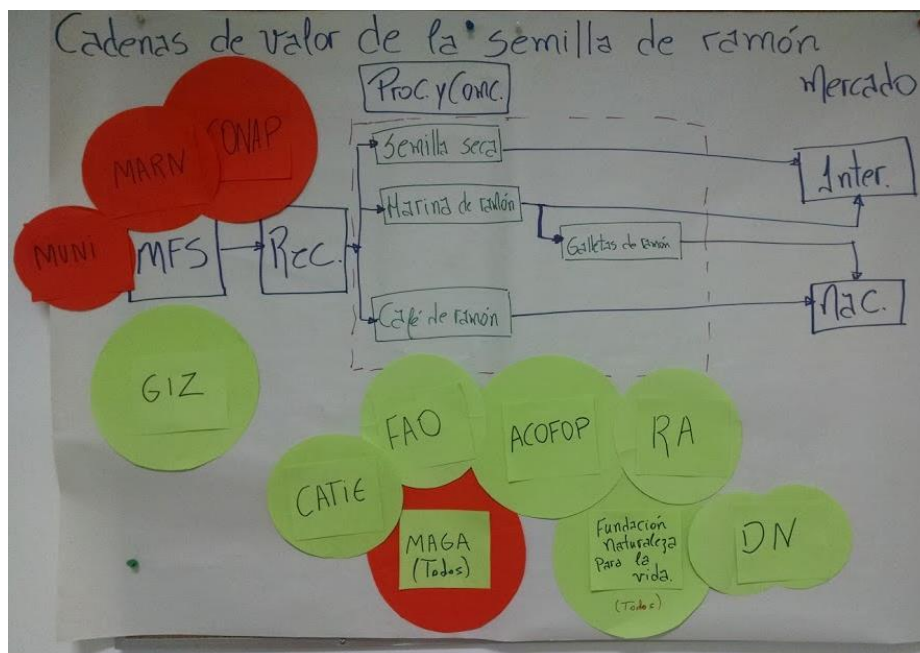 Cadenas de valor de la semilla de ramón
Proc. y Comc.
Mercado
CONAP
MARN
MUNI
MFS
Rec.
Semilla seca
Harina de ramón
Galletas de ramón
Café de ramón
Inter.
Nac.
GIZ
FAO
ACOFOP
RA
CATIE
MAGA
(Todos)
Fundación
Naturaleza
Para la
vida.
(Todos)
DN